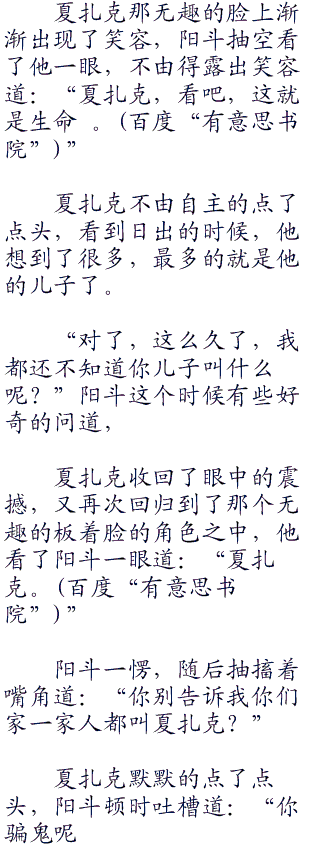 夏扎克那无趣的脸上渐
渐出现了笑容，阳斗抽空看
了他一眼，不由得露出笑容
道：“夏扎克，看吧，这就
是生命 。(百度“有意思书
院”)”
夏扎克不由自主的点了
点头，看到日出的时候，他
想到了很多，最多的就是他
的儿子了。
“对了，这么久了，我
都还不知道你儿子叫什么
呢？”阳斗这个时候有些好
奇的问道，
夏扎克收回了眼中的震
撼，又再次回归到了那个无
趣的板着脸的角色之中，他
看了阳斗一眼道：“夏扎
克。(百度“有意思书
院”)”
阳斗一愣，随后抽搐着
嘴角道：“你别告诉我你们
家一家人都叫夏扎克？”
夏扎克默默的点了点
头，阳斗顿时吐槽道：“你
骗鬼呢